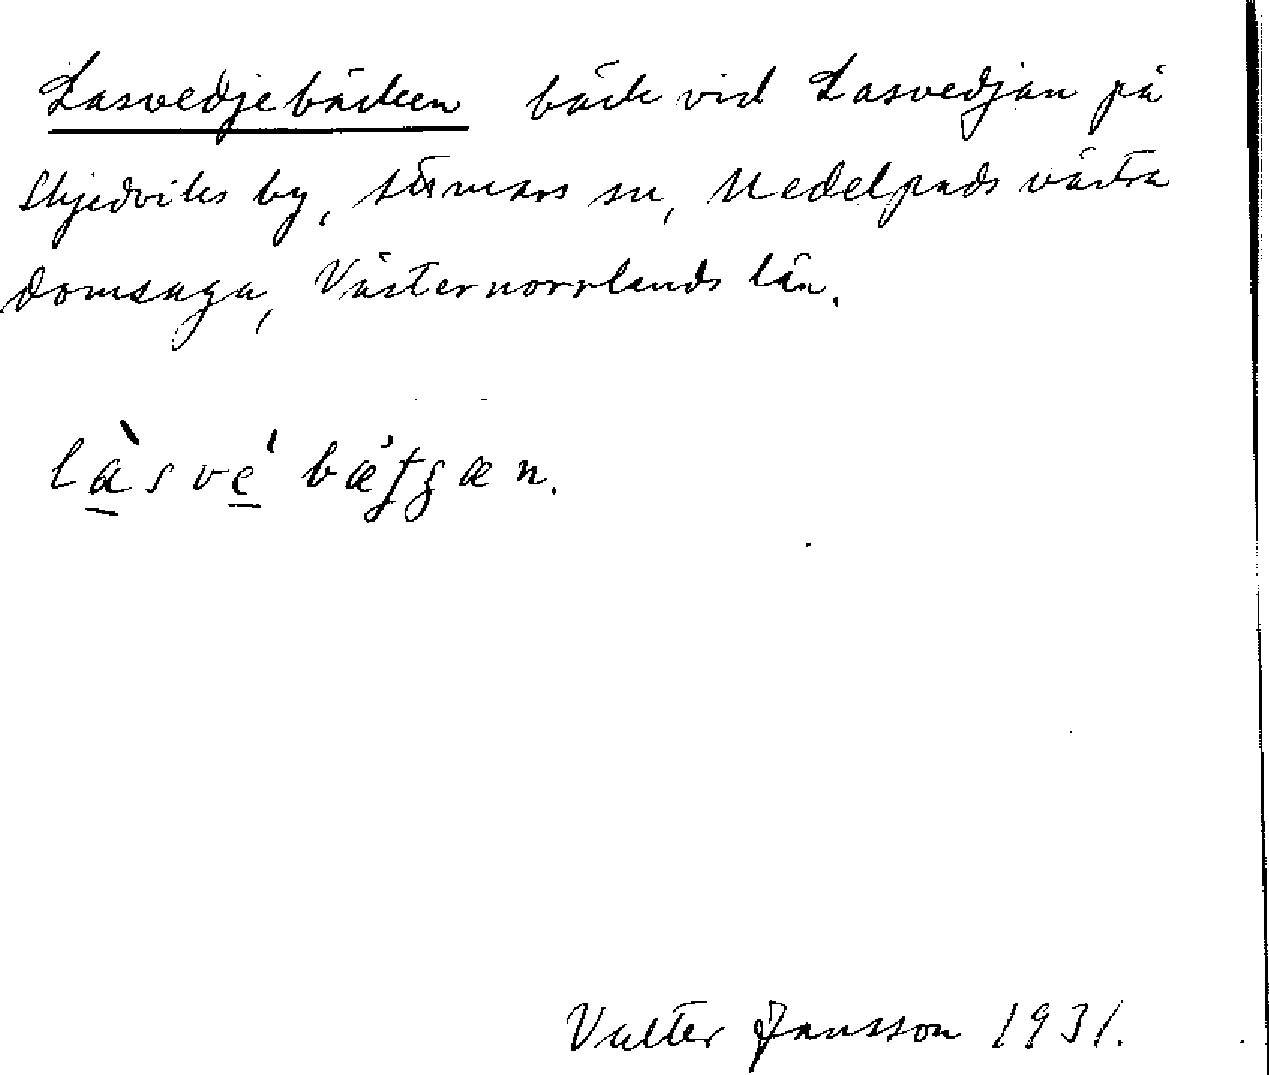 Lasvedjebäcken bäck vid Lasvedjan på
Skjedviks by, sn, Medelpads västra
domsaga, Västernorrlands län.
làsvé bæ'tʃæn.
Valter Jansson 1931.